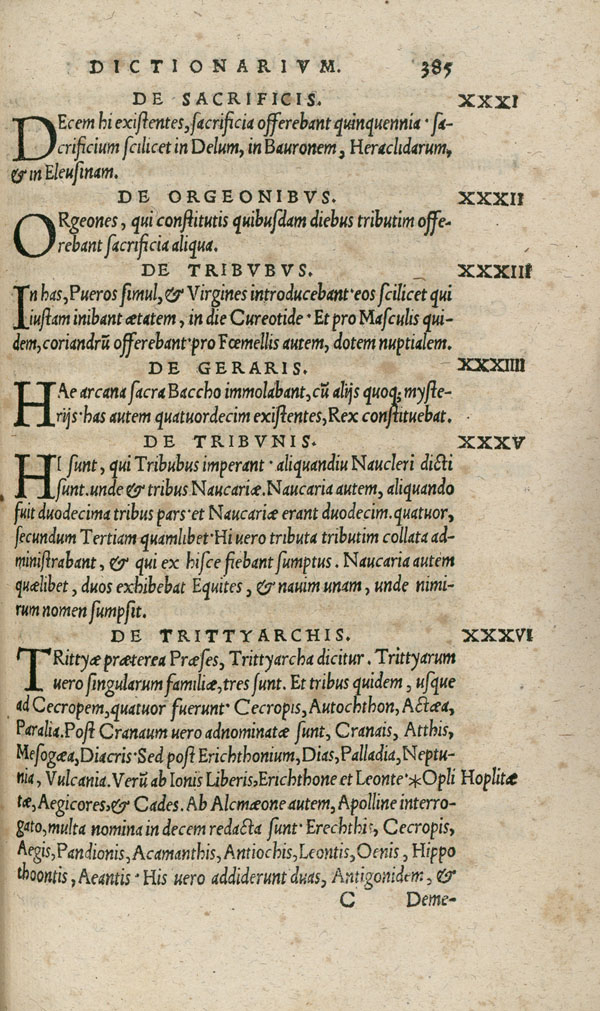 DICTIONARIVM. 385
DE SACRIFICIS. XXXI
DEcem hi existentes, sacrificia offerebant quinquennia· sa-
crificium scilicet in Delum, in Bauronem, Heraclidarum,
& in Eleusinam.
DE ORGEONIBVS. XXXII
ORgeones, qui constitutis quibusdam diebus tributim offe-
rebant sacrificia aliqua.
DE TRIBVBVS. XXXIII
In has, Pueros simul, & Virgines introducebant· eos scilicet qui
iustam inibant ætatem, in die Cureotide· Et pro Masculis qui-
dem, coriandrũ offerebant· pro Fœmellis autem, dotem nuptialem.
DE GERARIS. XXXIIII
HAe arcana sacra Baccho immolabant, cũ alijs quoq; myste-
rijs· has autem quatuordecim existentes, Rex constituebat.
DE TRIBVNIS. XXXV
HI sunt, qui Tribubus imperant· aliquandiu Naucleri dicti
sunt. unde & tribus Naucariæ. Naucaria autem, aliquando
fuit duodecima tribus pars· et Naucariæ erant duodecim. quatuor,
secundum Tertiam quamlibet· Hi uero tributa tributim collata ad-
ministrabant, & qui ex hisce fiebant sumptus. Naucaria autem
quælibet, duos exhibebat Equites, & nauim unam, unde nimi-
rum nomen sumpsit.
DE TRITTYARCHIS. XXXVI
TRittyæ præterea Præses, Trittyarcha dicitur. Trittyarum
uero singularum familiæ, tres sunt. Et tribus quidem, usque
ad Cecropem, quatuor fuerunt· Cecropis, Autochthon, Actæa,
Paralia. Post Cranaum uero adnominatæ sunt, Cranais, Atthis,
Mesogæa, Diacris· Sed post Erichthonium, Dias, Palladia, Neptu-
nia, Vulcania. Verũ ab Ionis Liberis, Erichthone et Leonte· *Opli Hoplitæ
tæ, Aegicores, & Cades. Ab Alcmæone autem, Apolline interro-
gato, multa nomina in decem redacta sunt· Erechthis, Cecropis,
Aegis, Pandionis, Acamanthis, Antiochis, Leontis, Oenis, Hippo
thoontis, Aeantis· His uero addiderunt duas, Antigonidem, &
C Deme-